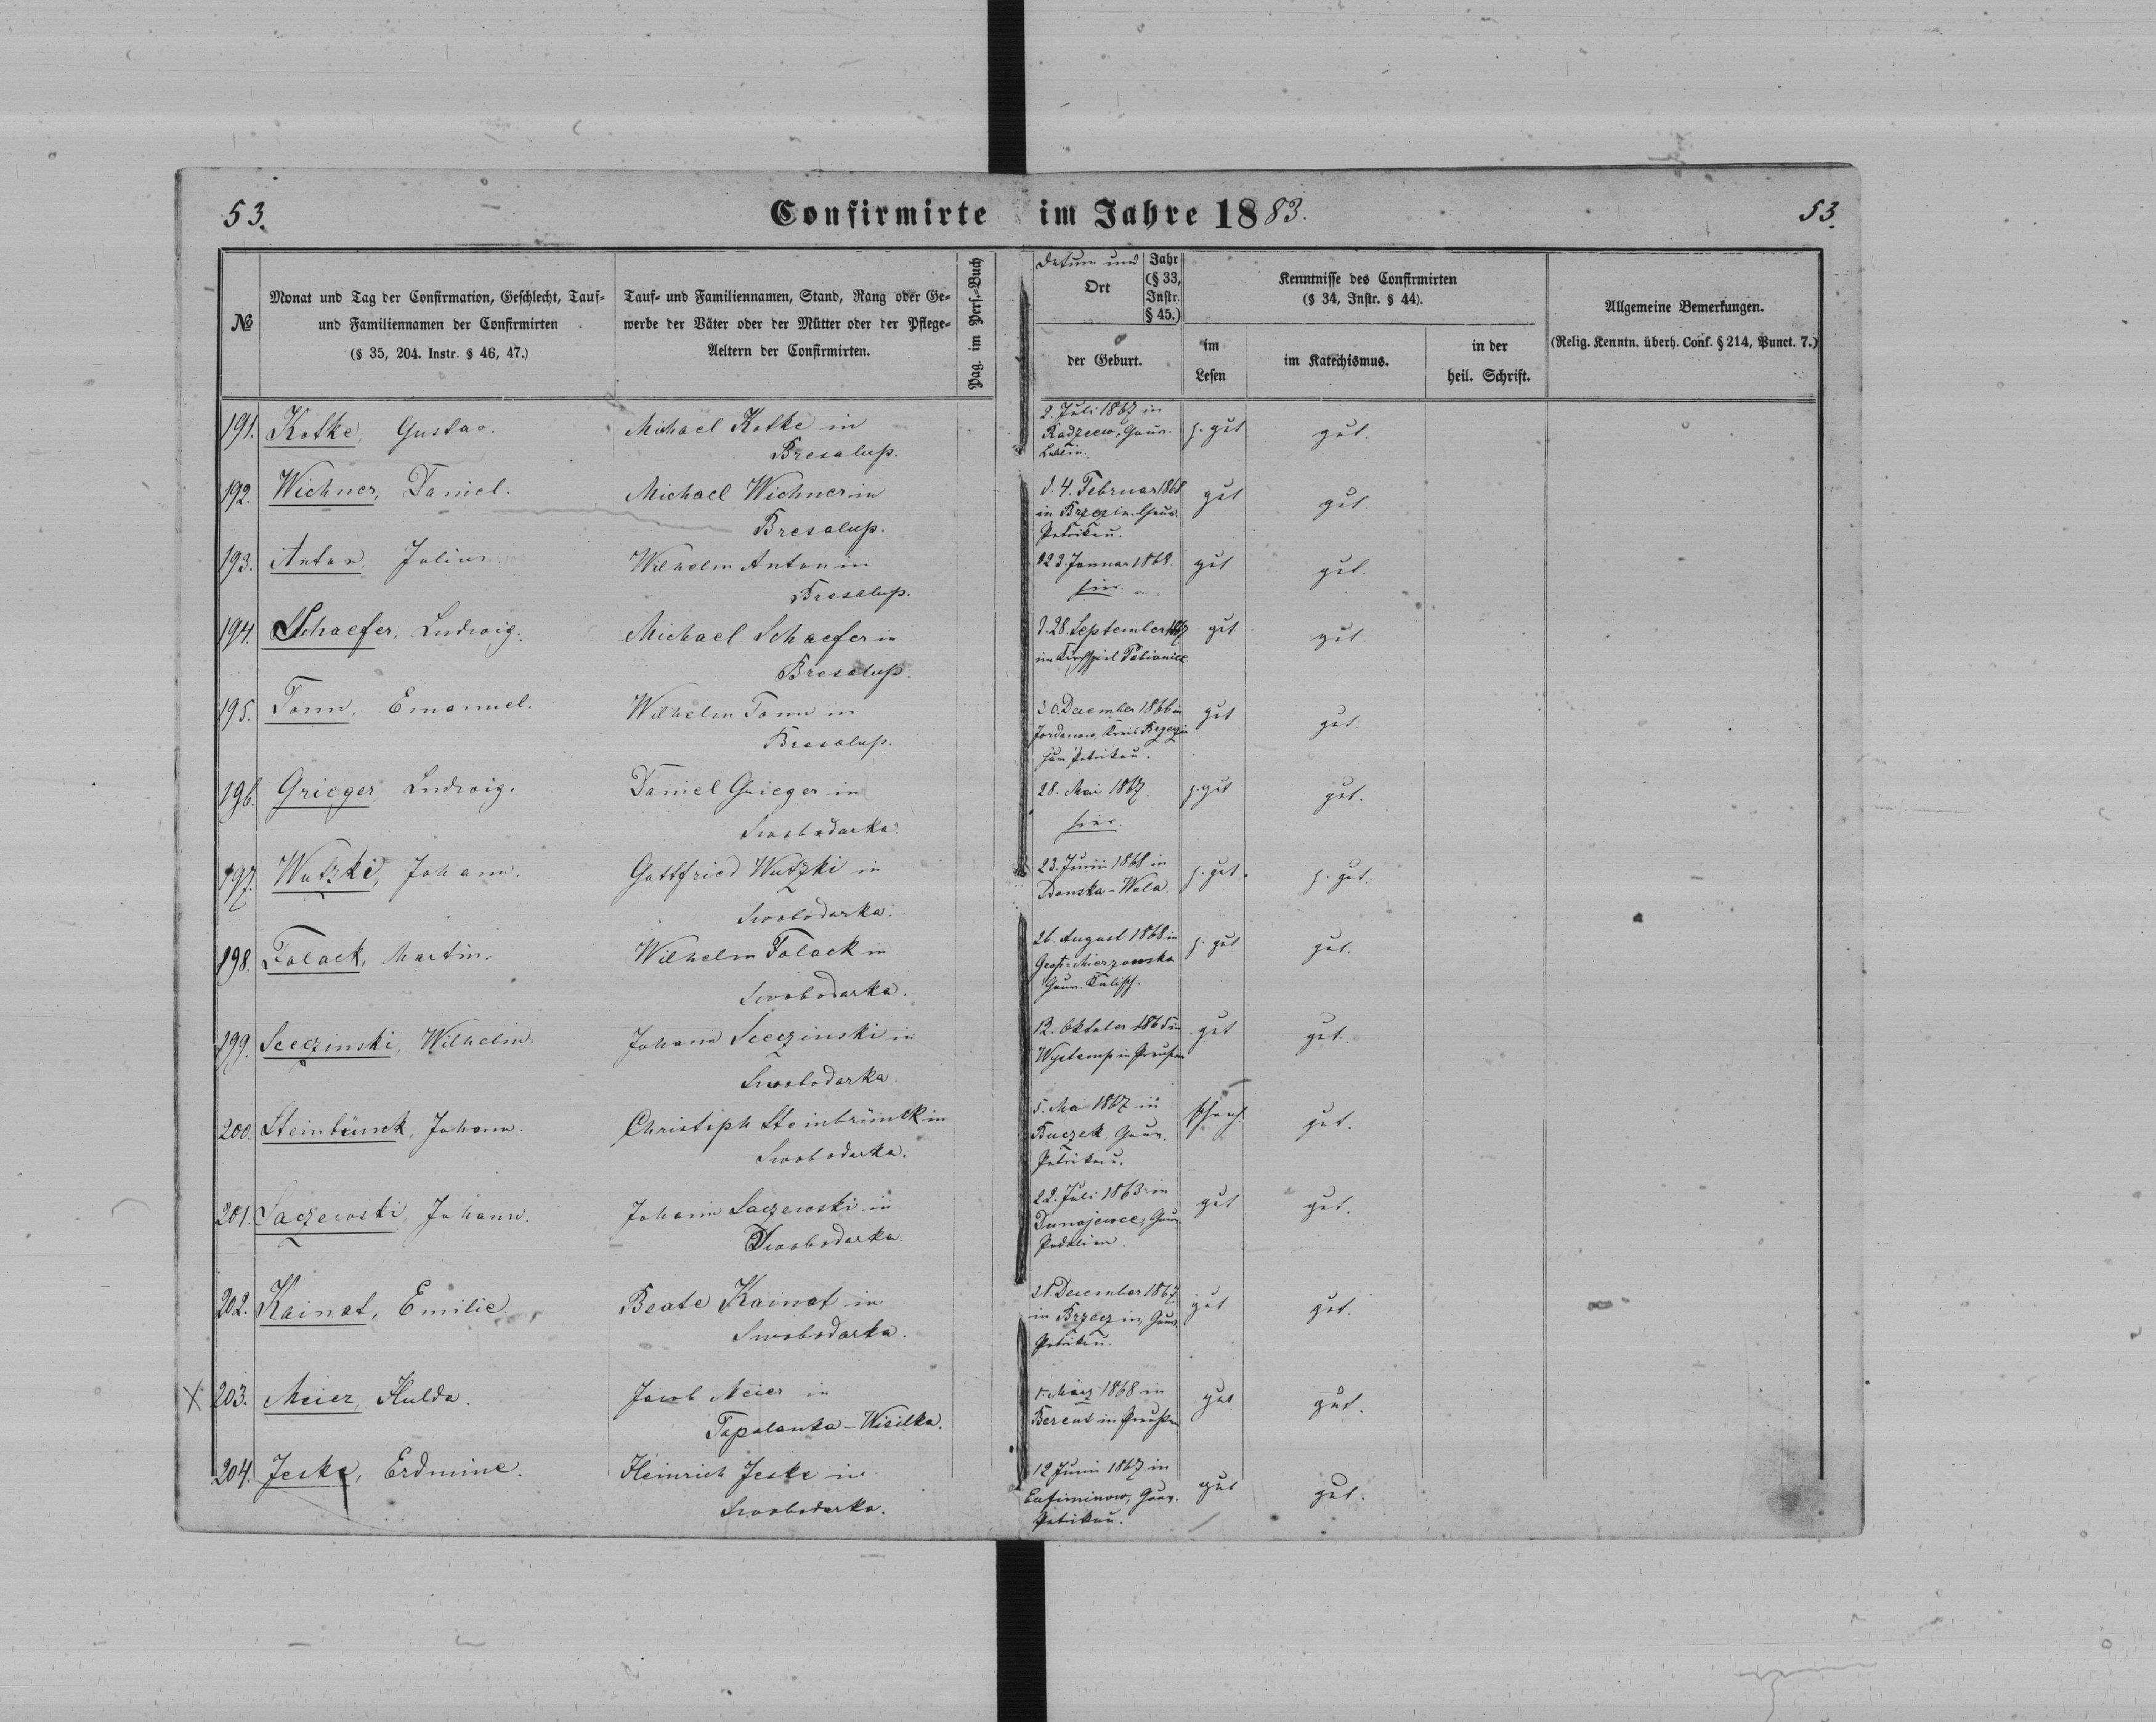 53.
Confirmirte im Jahre 1883.
53.
№
Monat und Tag der Confirmation, Geschlecht, Tauf-
und Familiennamen der Confirmirten
(§ 35, 204. Instr. § 46, 47.)
Tauf- und Familiennamen, Stand, Rang oder Ge-
werbe der Väter oder der Mütter oder der Pflege-
Aeltern der Confirmirten.
Pag. im Pers.-Buch
Datum und
Ort
Jahr
(§ 33,
Instr.
§ 45.)
der Geburt.
Kenntnisse des Confirmirten
(§ 34, Instr. § 44).
im
Lesen
im Katechismus.
in der
heil. Schrift.
Allgemeine Bemerkungen.
(Relig. Kenntn. überh. Conf. § 214, Punct. 7.)
191. Kotke, Gustav. Michael Kotke in 2. Juli 1867 in
Bresalup. Radzcew, Gouv. z. gut gut.
Lublin.
192. Wichner, Daniel. Michael Wichner in d. 4. Februar 1868 gut gut.
Bresalup. in Brzezin. Gouv.
Petrikau.
193. Anton, Julius. Wilhelm Anton in 23. Januar 1868. gut gut.
Bresalup. hier.
194. Schaefer, Ludwig. Michael Schaefer in d. 28. September 1867 gut gut.
Bresalup. im Kirchspiel Pabianice
195. Tonn, Emanuel. Wilhelm Tonn in 30. December 1866 in gut gut.
Bresalup. Jordanow, Kreis Brzezin
Gouv. Petrikau.
196. Grieger, Ludwig. Daniel Grieger in 28. Mai 1867. z. gut gut.
Swobodarka. hier.
197. Wutzki, Johann. Gottfried Wutzki in 23. Junii 1868 in z. gut. z. gut.
Swobodarka. Donska-Wola.
198. Folack, Martin. Wilhelm Folack in 26. August 1868 in z. gut gut.
Swobodarka. Gouv. Kalisch.
199. Seeczinski, Wilhelm. Johann Seeczinski in 12. Oktober 1865 in gut gut.
Swobodarka. in Preußen
200. Steinbrünck, Johann. Christoph Steinbrünck in 5. Mai 1867 in schwach gut.
Swobodarka. Buczek, Gouv.
Petrikau.
201. Saczewski, Johann. Johann Saczewski in 22. Juli 1863 in gut gut.
Swobodarka. Dunajewce, Gouv.
Podolien.
202. Kainat, Emilie. Beate Kainat in 21 December 1867 gut gut.
Swobodarka. in Brzezin, Gouv.
Petrikau.
X 203. Meier, Hulda. Jacob Meier in 1. März 1868 in gut gut.
Topolanka-Wisilka. Berent in Preußen
204. Jeske, Erdmine. Heinrich Jeske in 12 Junii 1867 in gut gut.
Swobodarka. Eufiminow, Gouv.
Petrikau.